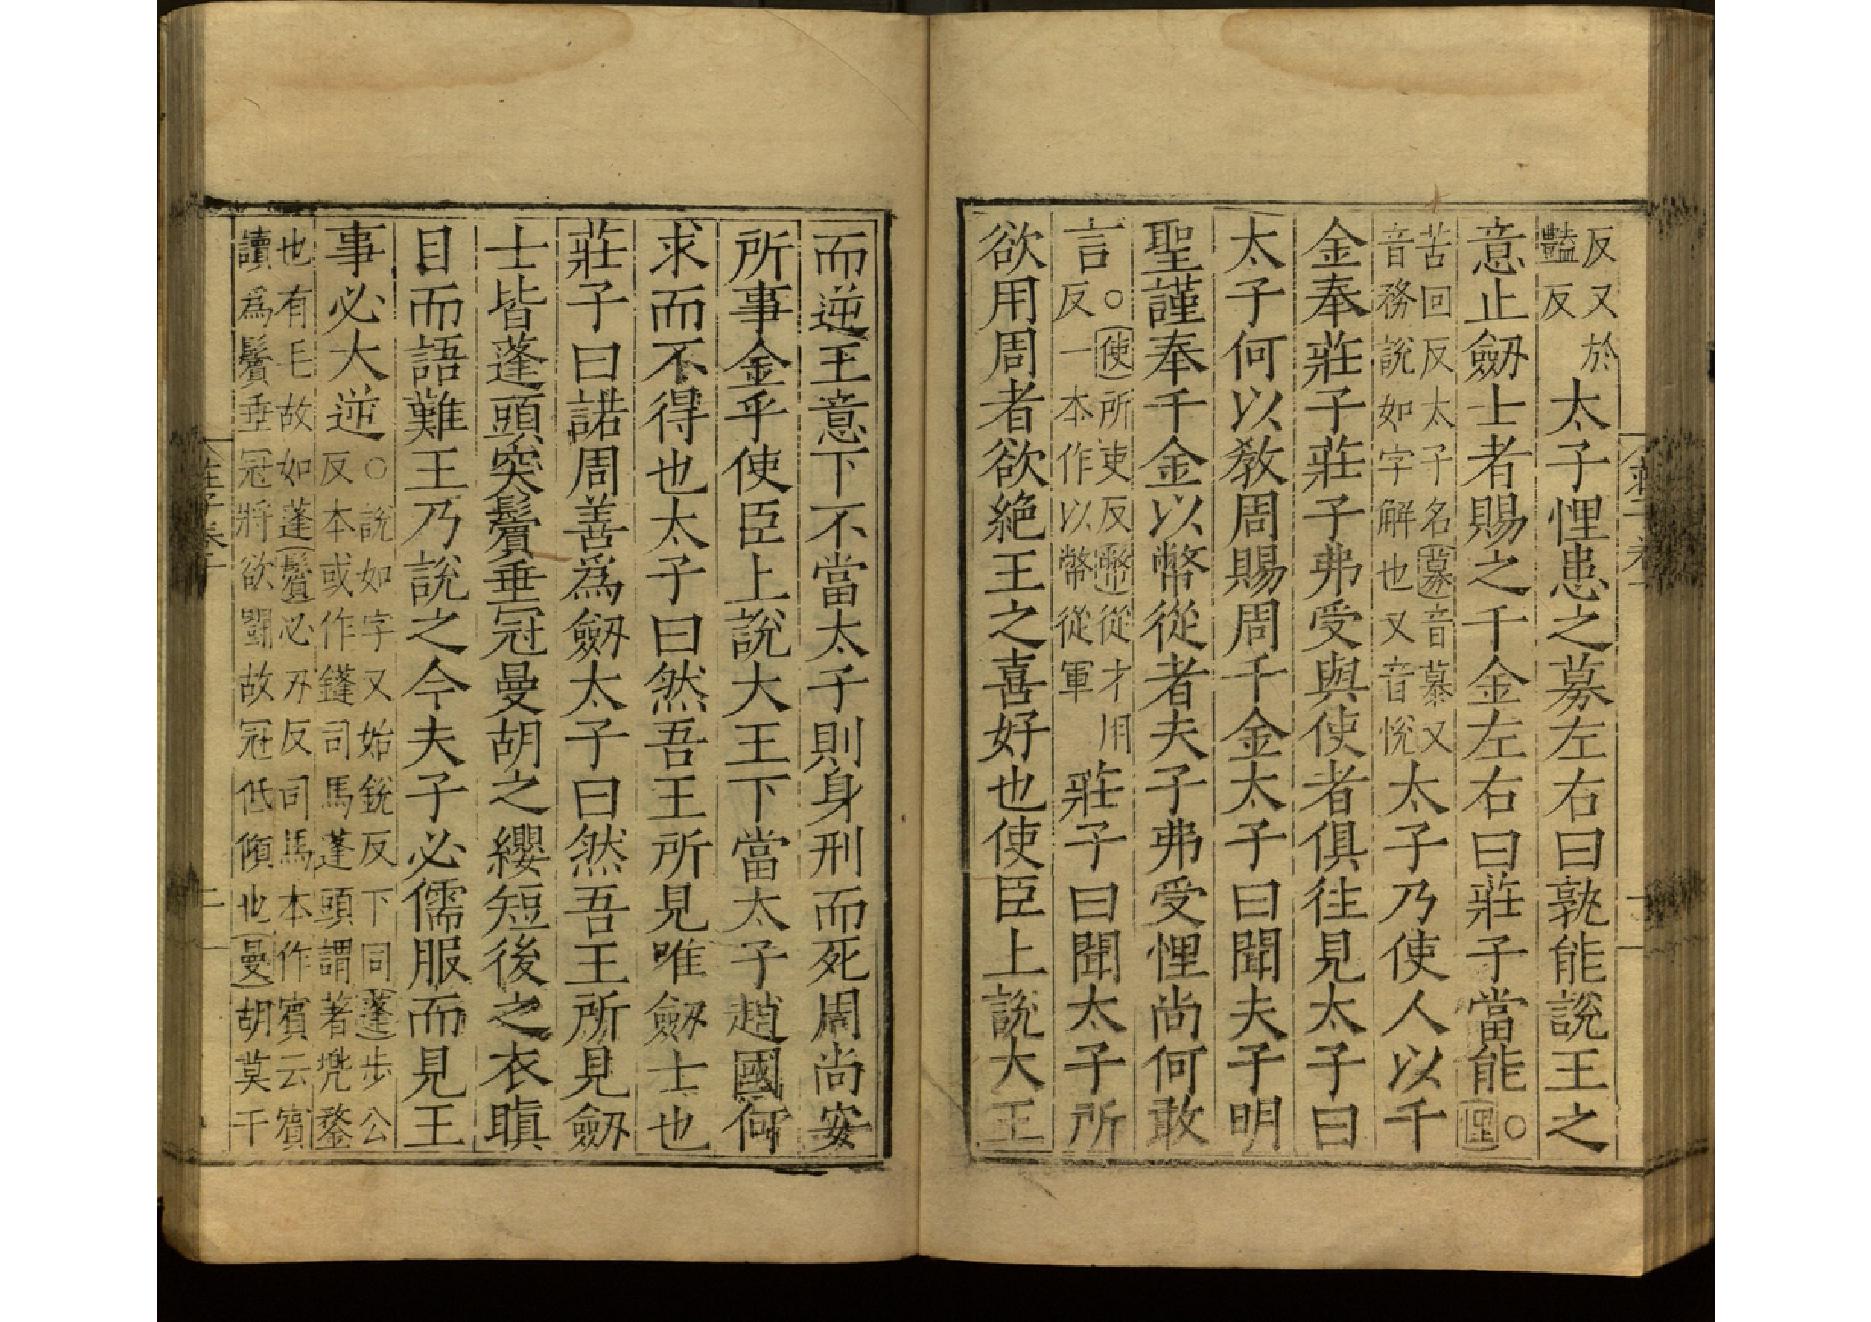 反又於豔反太子悝患之募左右曰孰能說王之
意止劒士者賜之千金左右曰莊子當能○悝
苦回反太子名募音慕又音務說如字解也又音悅太子乃使人以千
金奉莊子莊子弗受與使者俱往見太子曰
太子何以敎周賜周千金太子曰聞夫子明
聖謹奉千金以幣從者夫子弗受悝尚何敢
言○使所吏反幣從才用反一本作以幣從軍莊子曰聞太子所
欲用周者欲絶王之喜好也使臣上說大王
而逆王意下不當太子則身刑而死周尚安
所事金乎使臣上說大王下當太子趙國何
求而不得也太子曰然吾王所見唯劒士也
莊子曰諾周善爲劒太子曰然吾王所見劒
士皆蓬頭突鬢垂冠曼胡之纓短後之衣瞋
目而語難王乃說之今夫子必儒服而見王
事必大逆○說如字又始銳反下同蓬步公反本或作鏠司馬蓬頭謂著兜鍪
也有毛故如蓬鬢必刃反司馬本作賓云賓讀爲鬢垂冠將欲鬭故冠低傾也曼胡莫干